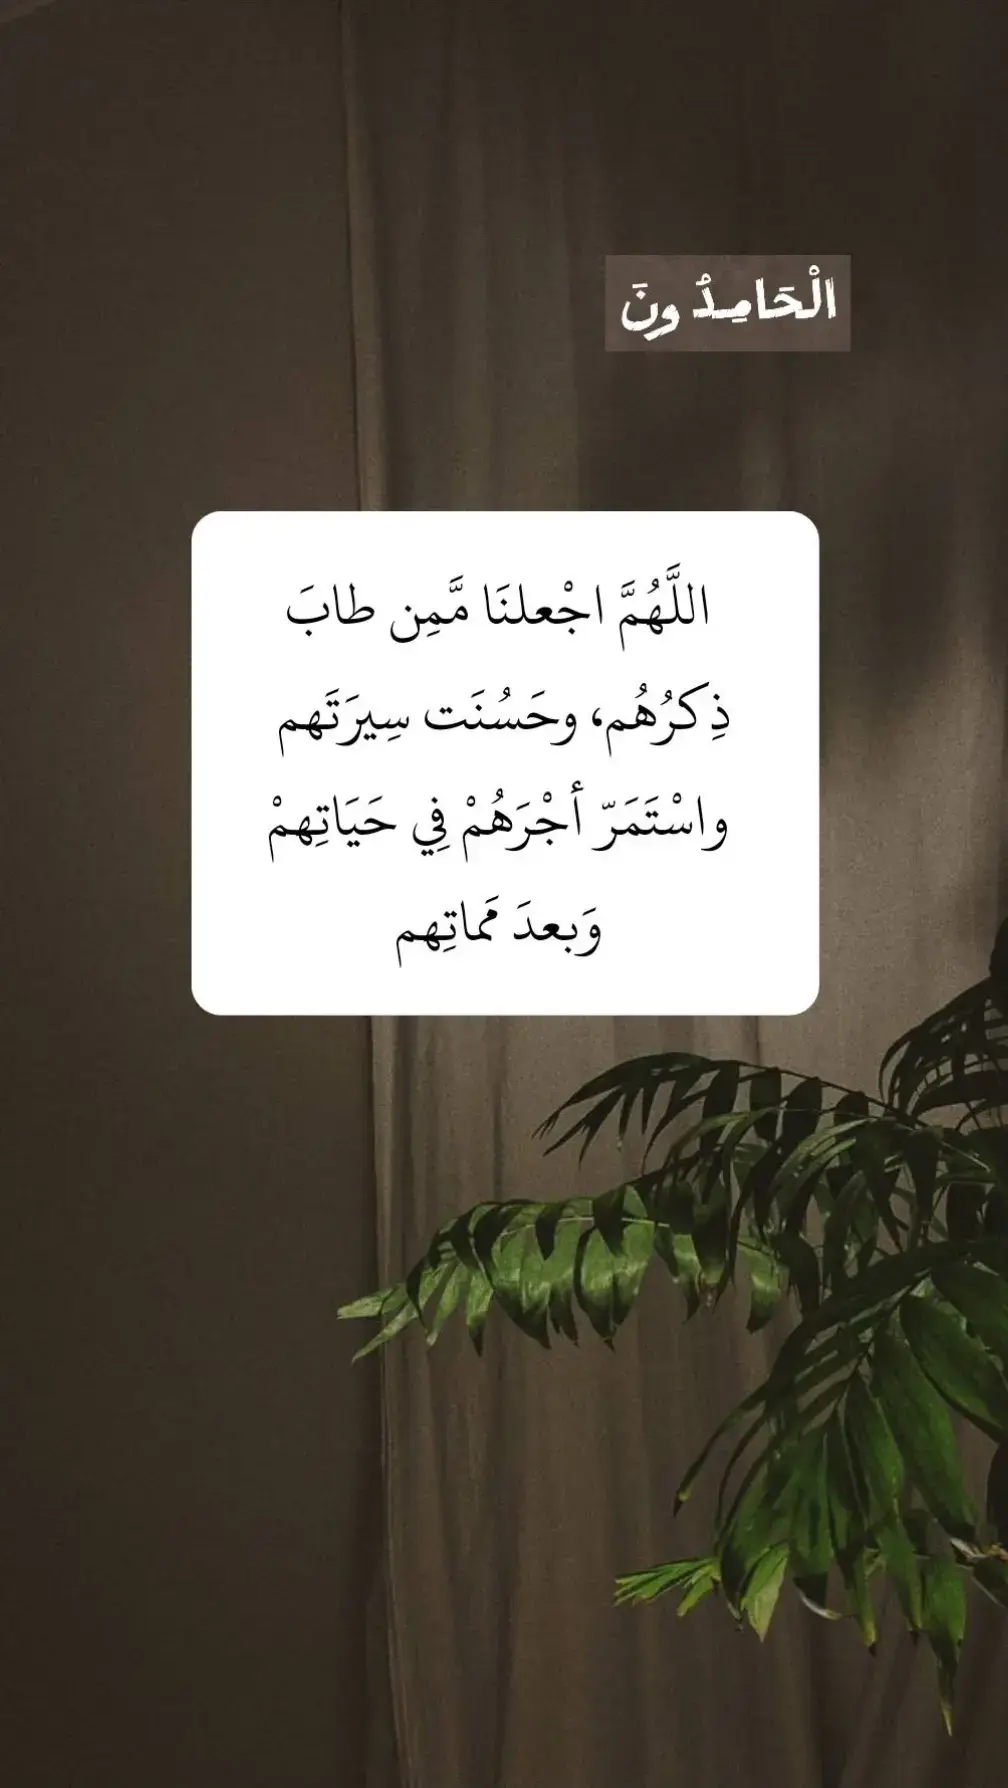 الْحَامِدُونَ
اللَّهُمَّ اجْعلنَا مَّمِن طابَ
ذِكرُهُم، وحَسُنَت سِيرَتَهم
واسْتَمَرّ أجْرَهُمْ فِي حَيَاتِهمْ
وَبعدَ مَماتِهم